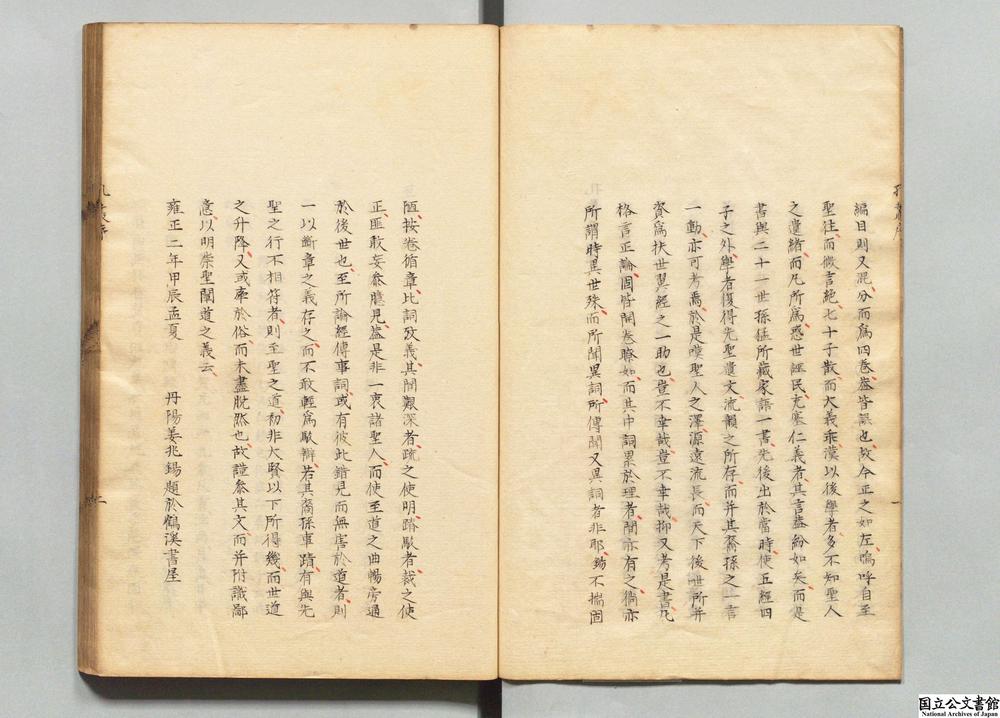 編目則又混分而為四卷葢皆誤也故今正之如左嗚呼自至
聖往而微言絕七十子散而大義乖漢以後學者多不知聖人
之遺緒而凡所為惑世誣民充塞仁義者其言葢紛如矣而是
書與二十一世孫猛所藏家語一書先後出於當時使五經四
子之外學者復得先聖遺文流韻之所存而并其裔孫之一言
一動亦可考焉於是嘆聖人之澤源遠流長而天下後世所并
資為扶世翼經之一助也豈不幸哉豈不幸哉抑又考是書凡
格言正論固皆開卷瞭如而其中詞累於理者間亦有之倘亦
所謂時異世殊而所聞異詞所傳聞又異詞者非耶錫不揣固
陋按卷循章比詞攷義其間艱深者疏之使明踳駁者裁之使
正匪敢妄叅臆見葢是非一衷諸聖人而使至道之曲暢旁通
於後世也至所論經傳事詞或有彼此錯見而無害於道者則
一以斷章之義存之而不敢輕為駁辨若其裔孫車蹟有與先
聖之行不相符者則至聖之道初非大賢以下所得幾而世道
之升降又或牽於俗而未盡脫然也故謹叅其文而并附識鄙
意以明崇聖閑道之義云
雍正二年甲辰孟夏　丹陽姜兆錫題於鶴溪書屋
孔叢序
一
孔叢序
二
国立公文書館
National Archives of Japan